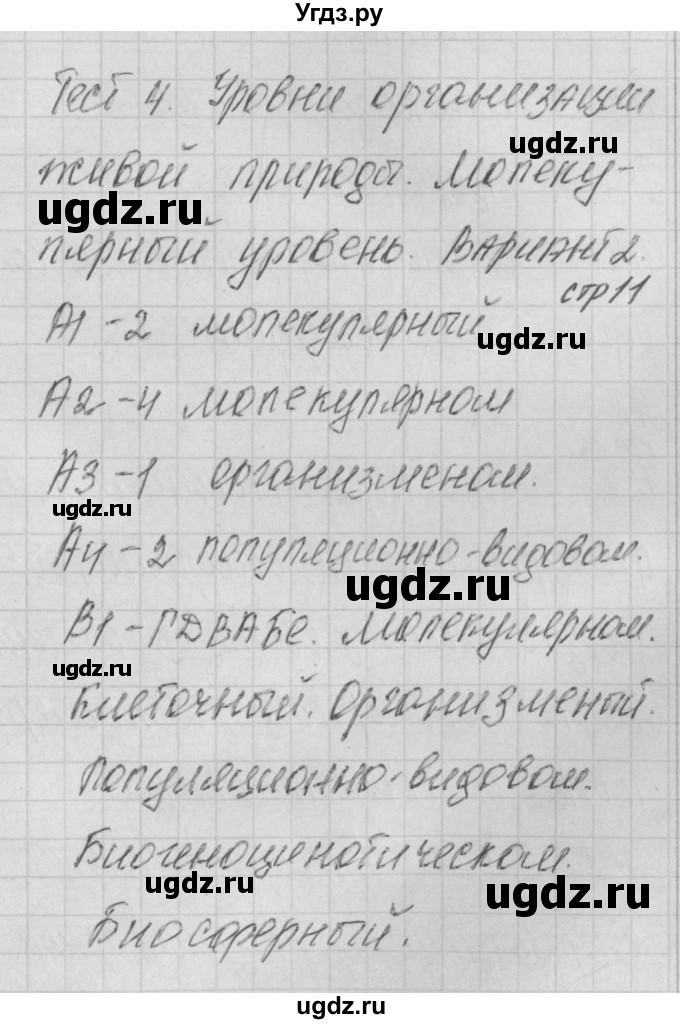 Угдз.ру
Тест 4. Уровни организации
ugdz.ru
живой природы. Молеку-
ugdz.ru
лярный уровень. Вариант 2.
стр 11
А1 - 2 молекулярный
ugdz.ru
А2 - 4 молекулярном
А3 - 1 организменом.
ugdz.ru
А4 - 2 популяционно-видовом.
ugdz.ru
В1 - ГДВАБЕ. Молекулярном.
ugdz.ru
Клеточный. Организменый.
Популяционно-видовом.
Биогеноценотическом.
ugdz.ru
ugdz.ru
Биосферный.
ugdz.ru